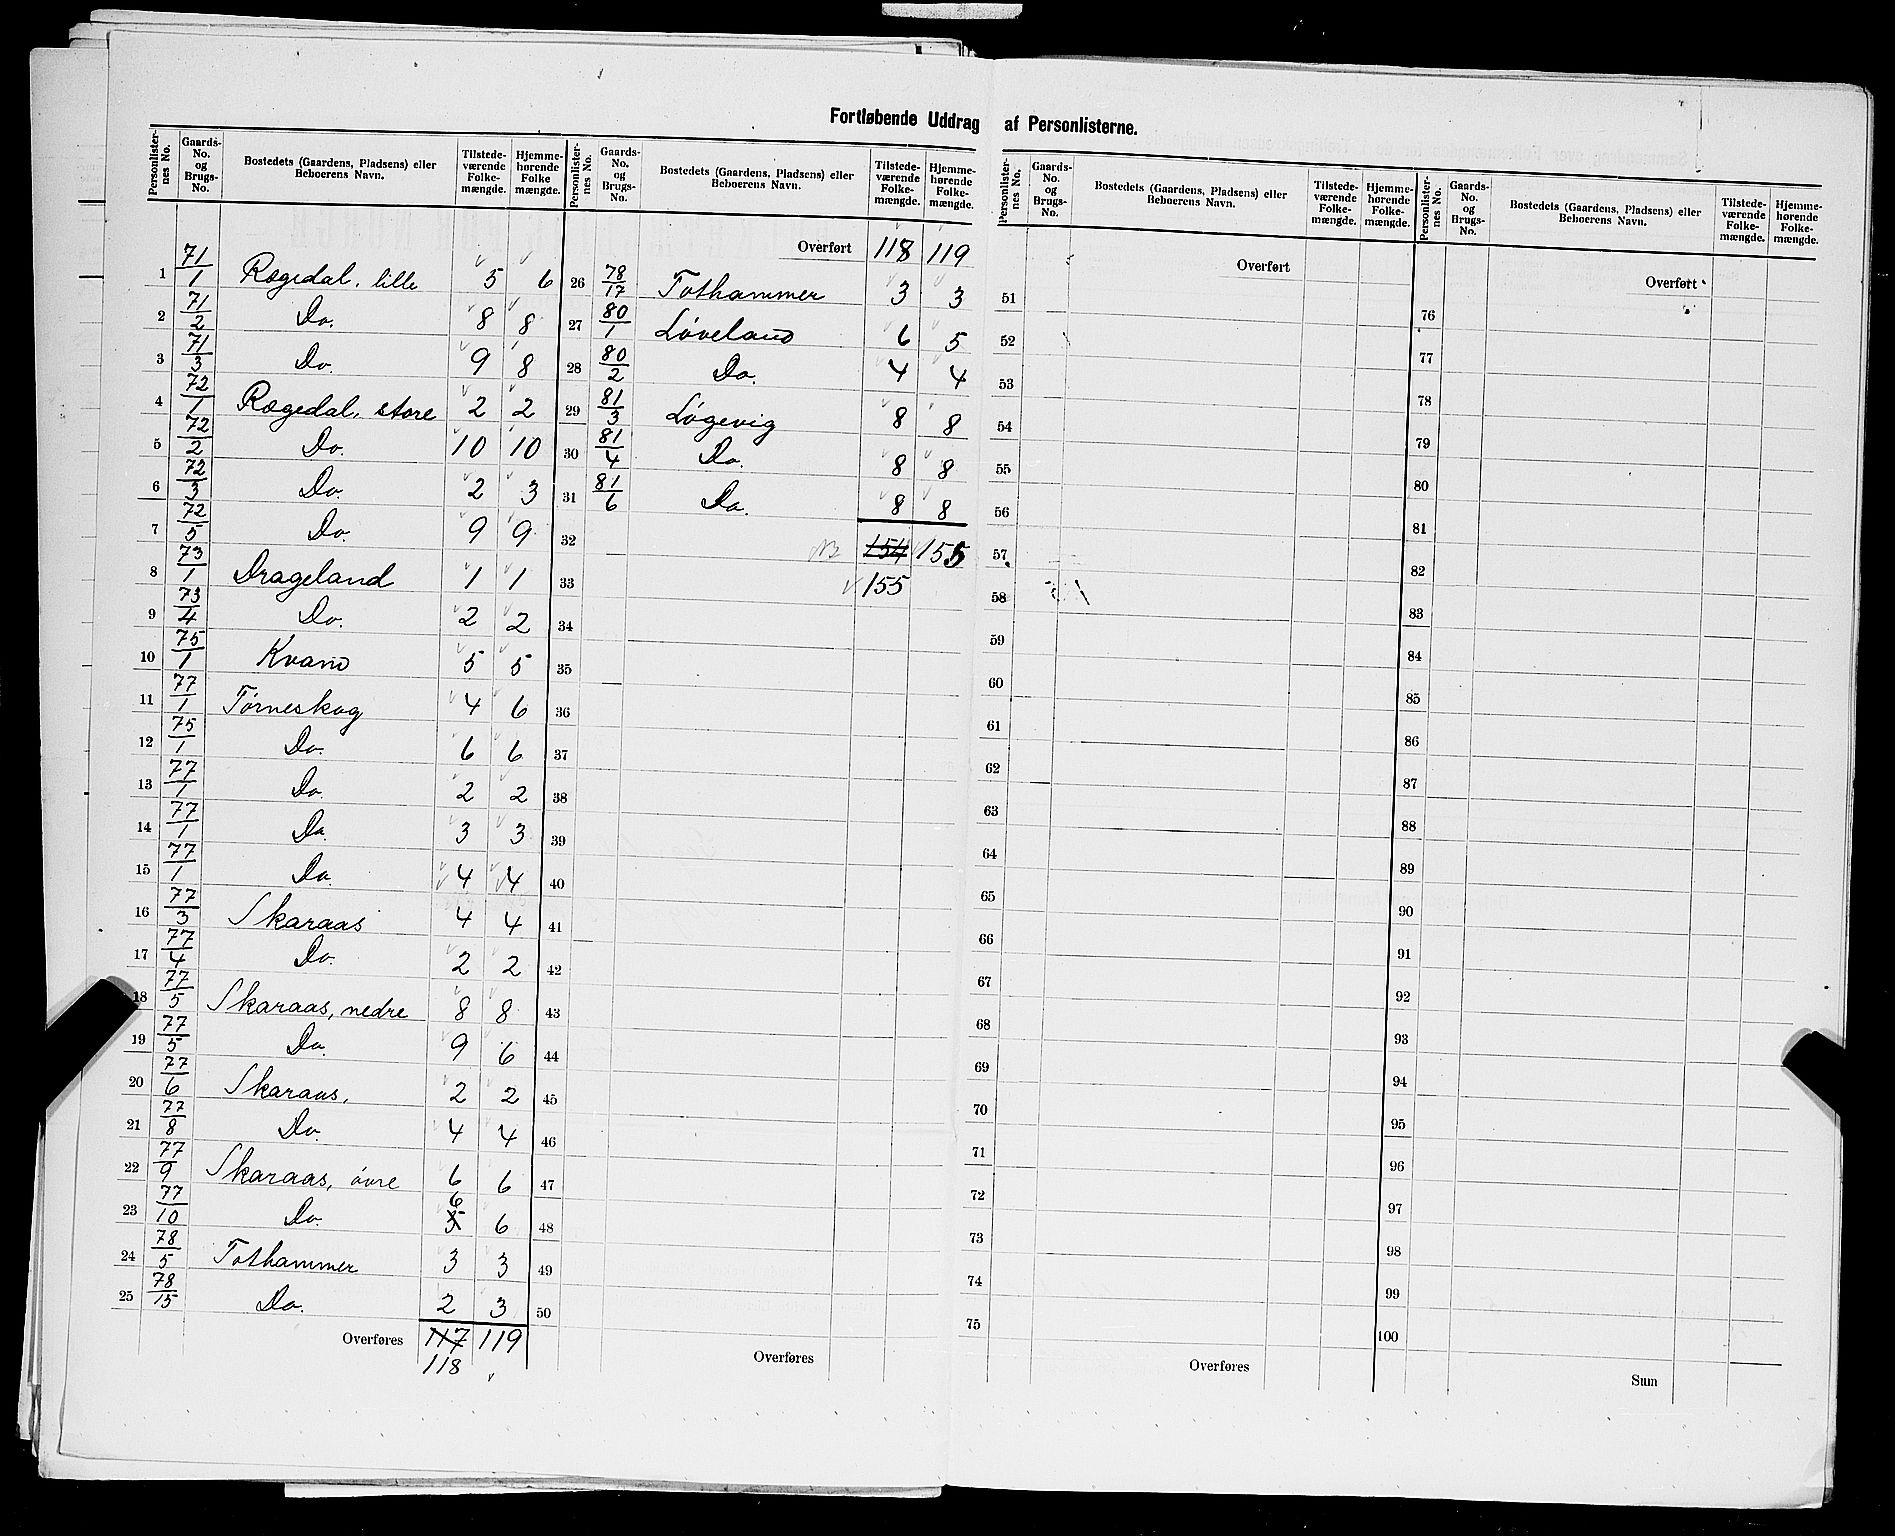 Fortløbende Uddrag af Personlisterne.
Personlisternes No. Gaards-No. og Brugs-No. Bostedets (Gaardens, Pladsens) eller Beboerens Navn. Tilstedeværende Folkemængde. Hjemmehørende Folkemængde.
1 71/1 Rægedal, lille 5 6
2 71/2 Do. 8 8
3 71/3 Do. 9 8
4 72/1 Rægedal, store 2 2
5 72/2 Do. 10 10
6 72/3 Do. 2 3
7 72/5 Do. 9 9
8 73/1 Drageland 1 1
9 73/4 Do. 2 2
10 75/1 Kvand 5 5
11 77/1 Tørneskog 4 6
12 75/1 Do. 6 6
13 77/1 Do. 2 2
14 77/1 Do. 3 3
15 77/1 Do. 4 4
16 77/3 Skaraas 4 4
17 77/4 Do. 2 2
18 77/5 Skaraas, nedre 8 8
19 77/5 Do. 9 6
20 77/6 Skaraas, 2 2
21 77/8 Do. 4 4
22 77/9 Skaraas, øvre 6 6
23 77/10 Do. 5 6 6
24 78/5 Tothammer 3 3
25 78/15 Do. 2 3
Overføres 117 119
118
Personlisternes No. Gaards-No. og Brugs-No. Bostedets (Gaardens, Pladsens) eller Beboerens Navn. Tilstedeværende Folkemængde. Hjemmehørende Folkemængde.
Overført 118 119
26 78/17 Tothammer 3 3
27 80/1 Løveland 6 5
28 80/2 Do. 4 4
29 81/3 Løgevig 8 8
30 81/4 Do. 8 8
31 81/6 Do. 8 8
32 154 155
33 155
34
35
36
37
38
39
40
41
42
43
44
45
46
47
48
49
50
Overføres
Personlisternes No. Gaards-No. og Brugs-No. Bostedets (Gaardens, Pladsens) eller Beboerens Navn. Tilstedeværende Folkemængde. Hjemmehørende Folkemængde.
Overført
51
52
53
54
55
56
57
58
59
60
61
62
63
64
65
66
67
68
69
70
71
72
73
74
75
Overføres
Personlisternes No. Gaards-No. og Brugs-No. Bostedets (Gaardens, Pladsens) eller Beboerens Navn. Tilstedeværende Folkemængde. Hjemmehørende Folkemængde.
Overført
76
77
78
79
80
81
82
83
84
85
86
87
88
89
90
91
92
93
94
95
96
97
98
99
100
Sum